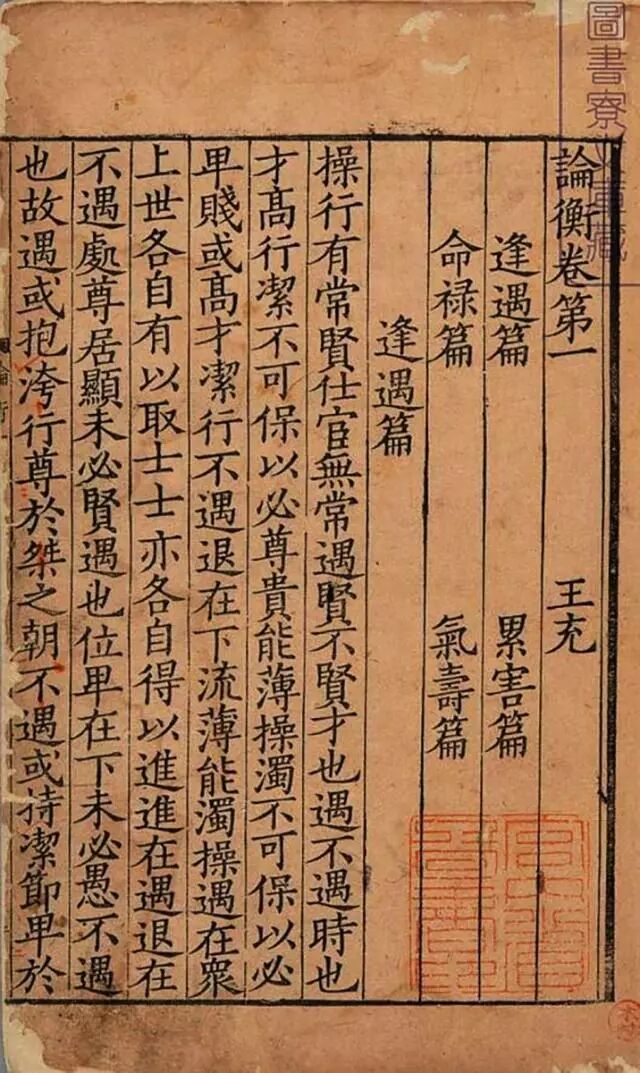 論衡卷第一 王充
逢遇篇 累害篇
命禄篇 氣壽篇
逢遇篇
操行有常賢仕宦無常遇賢不賢才也遇不遇時也
才髙行潔不可保以必尊貴能薄操濁不可保以必
卑賤或髙才潔行不遇退在下流薄能濁操遇在衆
上世各自有以取士士亦各自得以進進在遇退在
不遇處尊居顯未必賢遇也位卑在下未必愚不遇
也故遇或抱洿行尊於桀之朝不遇或持潔節卑於
圖書寮
藏